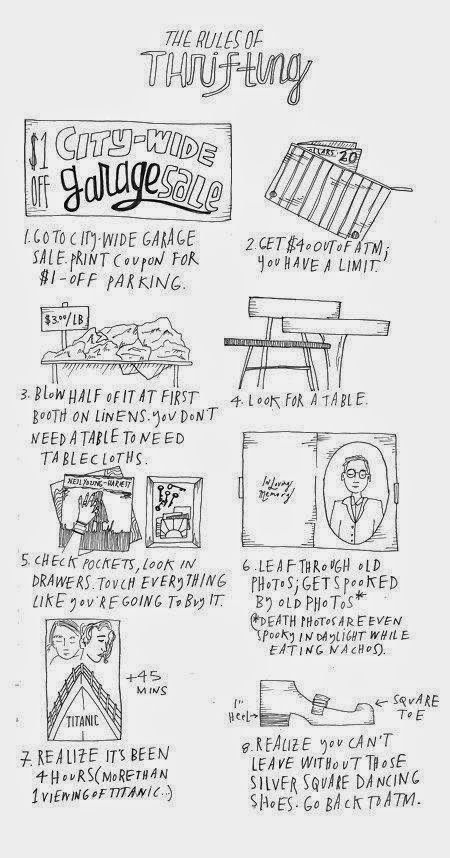 THE RULES OF
THRIFTING
$1
OFF
CITY-WIDE
garage SALE
1. GO TO CITY-WIDE GARAGE
SALE. PRINT COUPON FOR
$1-OFF PARKING.
DOLLARS 20
2. GET $40 OUT OF ATM;
YOU HAVE A LIMIT.
$3.00/LB
3. BLOW HALF OF IT AT FIRST
BOOTH ON LINENS. YOU DON'T
NEED A TABLE TO NEED
TABLECLOTHS.
4. LOOK FOR A TABLE.
NEIL YOUNG-HARVEST
5. CHECK POCKETS, LOOK IN
DRAWERS. TOUCH EVERYTHING
LIKE YOU'RE GOING TO BUY IT.
In Loving
Memory
6. LEAF THROUGH OLD
PHOTOS; GET SPOOKED
BY OLD PHOTOS*
(*DEATH PHOTOS ARE EVEN
SPOOKY IN DAYLIGHT WHILE
EATING NACHOS).
TITANIC
+45
MINS
7. REALIZE IT'S BEEN
4 HOURS (MORE THAN
1 VIEWING OF TITANIC...)
1"
HEEL
SQUARE
TOE
8. REALIZE YOU CAN'T
LEAVE WITHOUT THOSE
SILVER SQUARE DANCING
SHOES. GO BACK TO ATM.